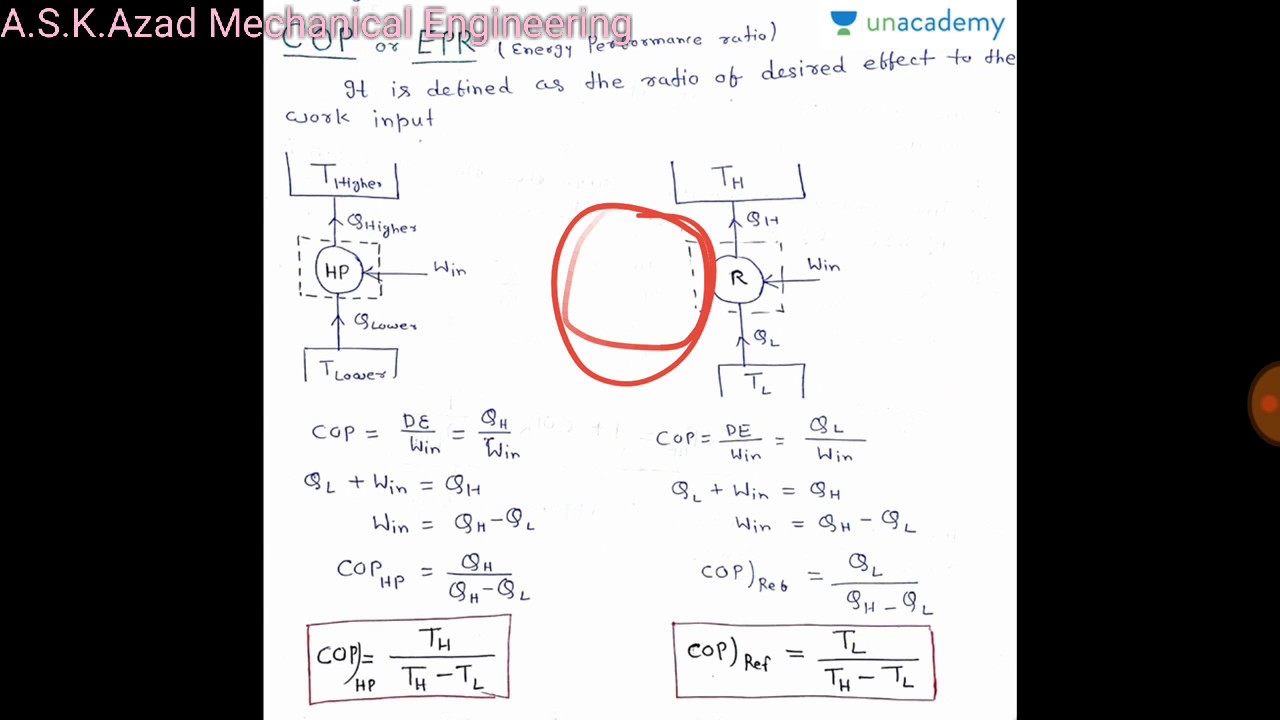 A.S.K.Azad Mechanical Engineering
unacademy
COP or EPR (Energy Performance ratio)
It is defined as the ratio of desired effect to the
work input
THigher
QHigher
HP
Win
QLower
TLower
COP = DE/Win = QH/Win
QL + Win = QH
Win = QH-QL
COPHP = QH/QH-QL
COP)HP = TH/TH-TL
TH
QH
R
Win
QL
TL
COP = DE/Win = QL/Win
QL + Win = QH
Win = QH - QL
COP)Ref = QL/QH-QL
COP)Ref = TL/TH-TL